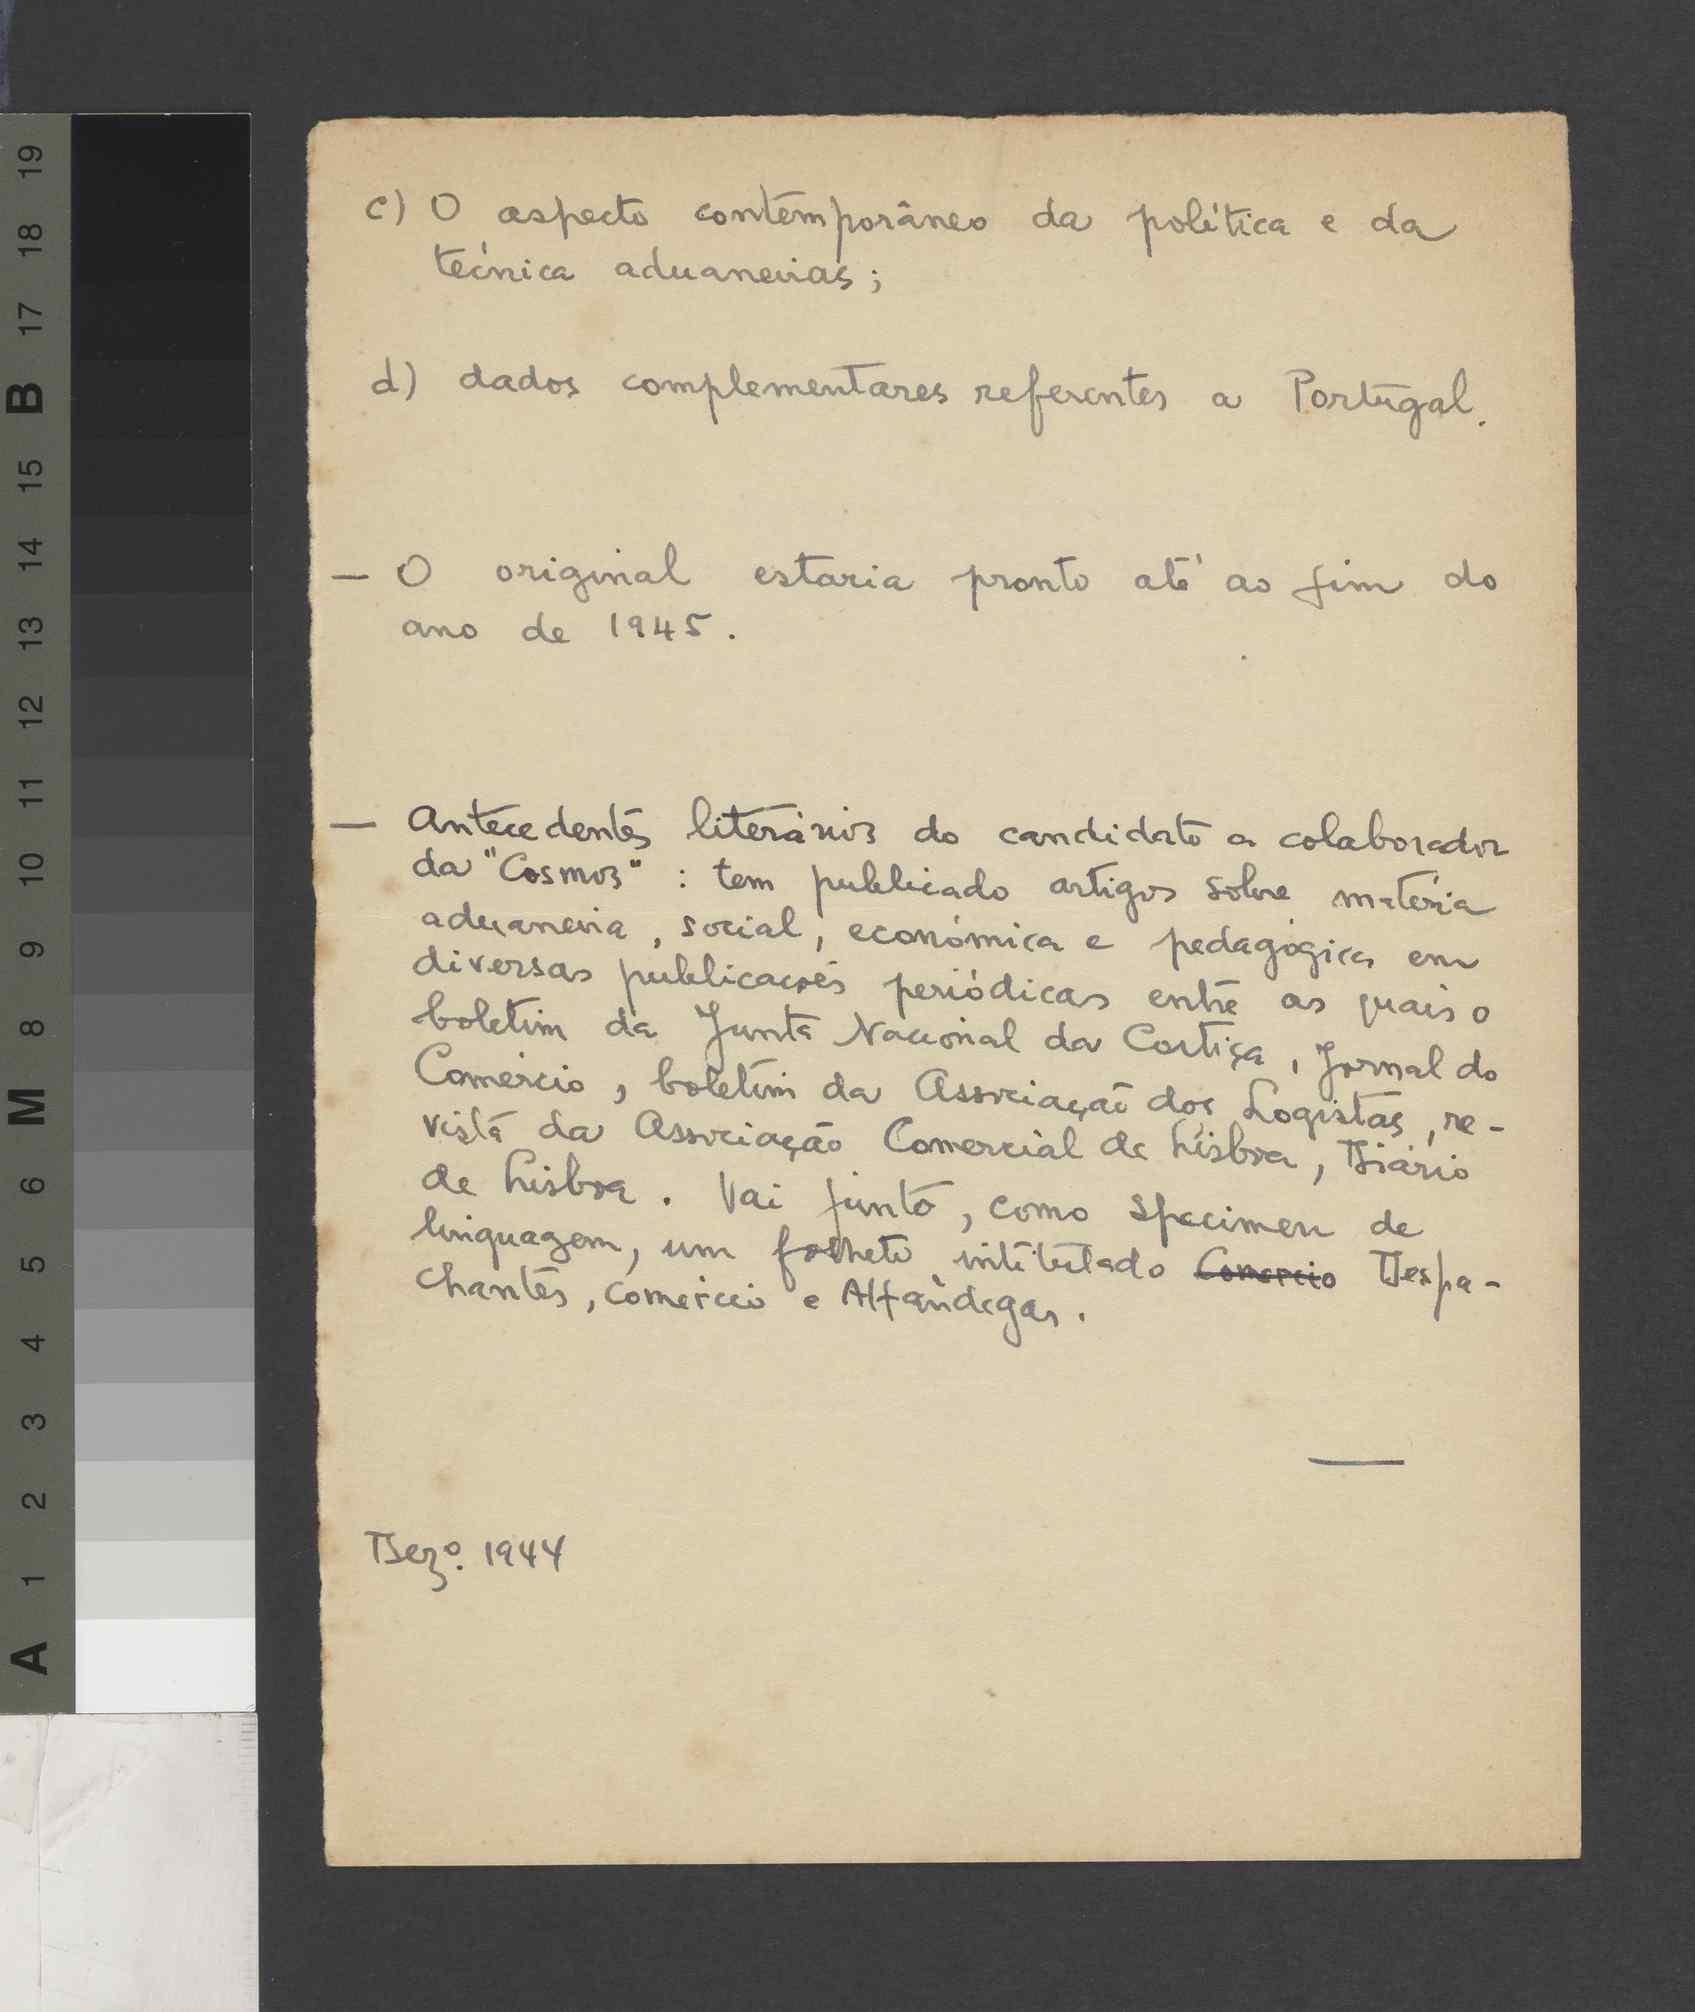 c) O aspecto contemporâneo da política e da
técnica aduaneiras;
d) dados complementares referentes a Portugal.
— O original estaria pronto até ao fim do
ano de 1945.
— Antecedentes literários do candidato a colaborador
da "Cosmos" : tem publicado artigos sobre matéria
aduaneira, social, económica e pedagógica em
diversas publicações periódicas entre as quais o
boletim da Junta Nacional da Cortiça, Jornal do
Comércio, boletim da Associação dos Logistas, re-
vista da Associação Comercial de Lisboa, Diário
de Lisboa. Vai junto, como specimen de
linguagem, um folheto intitulado Comercio Despa-
chantes, comércio e Alfândegas.
Dezº. 1944
A 1 2 3 4 5 6 M 8 9 10 11 12 13 14 15 B 17 18 19